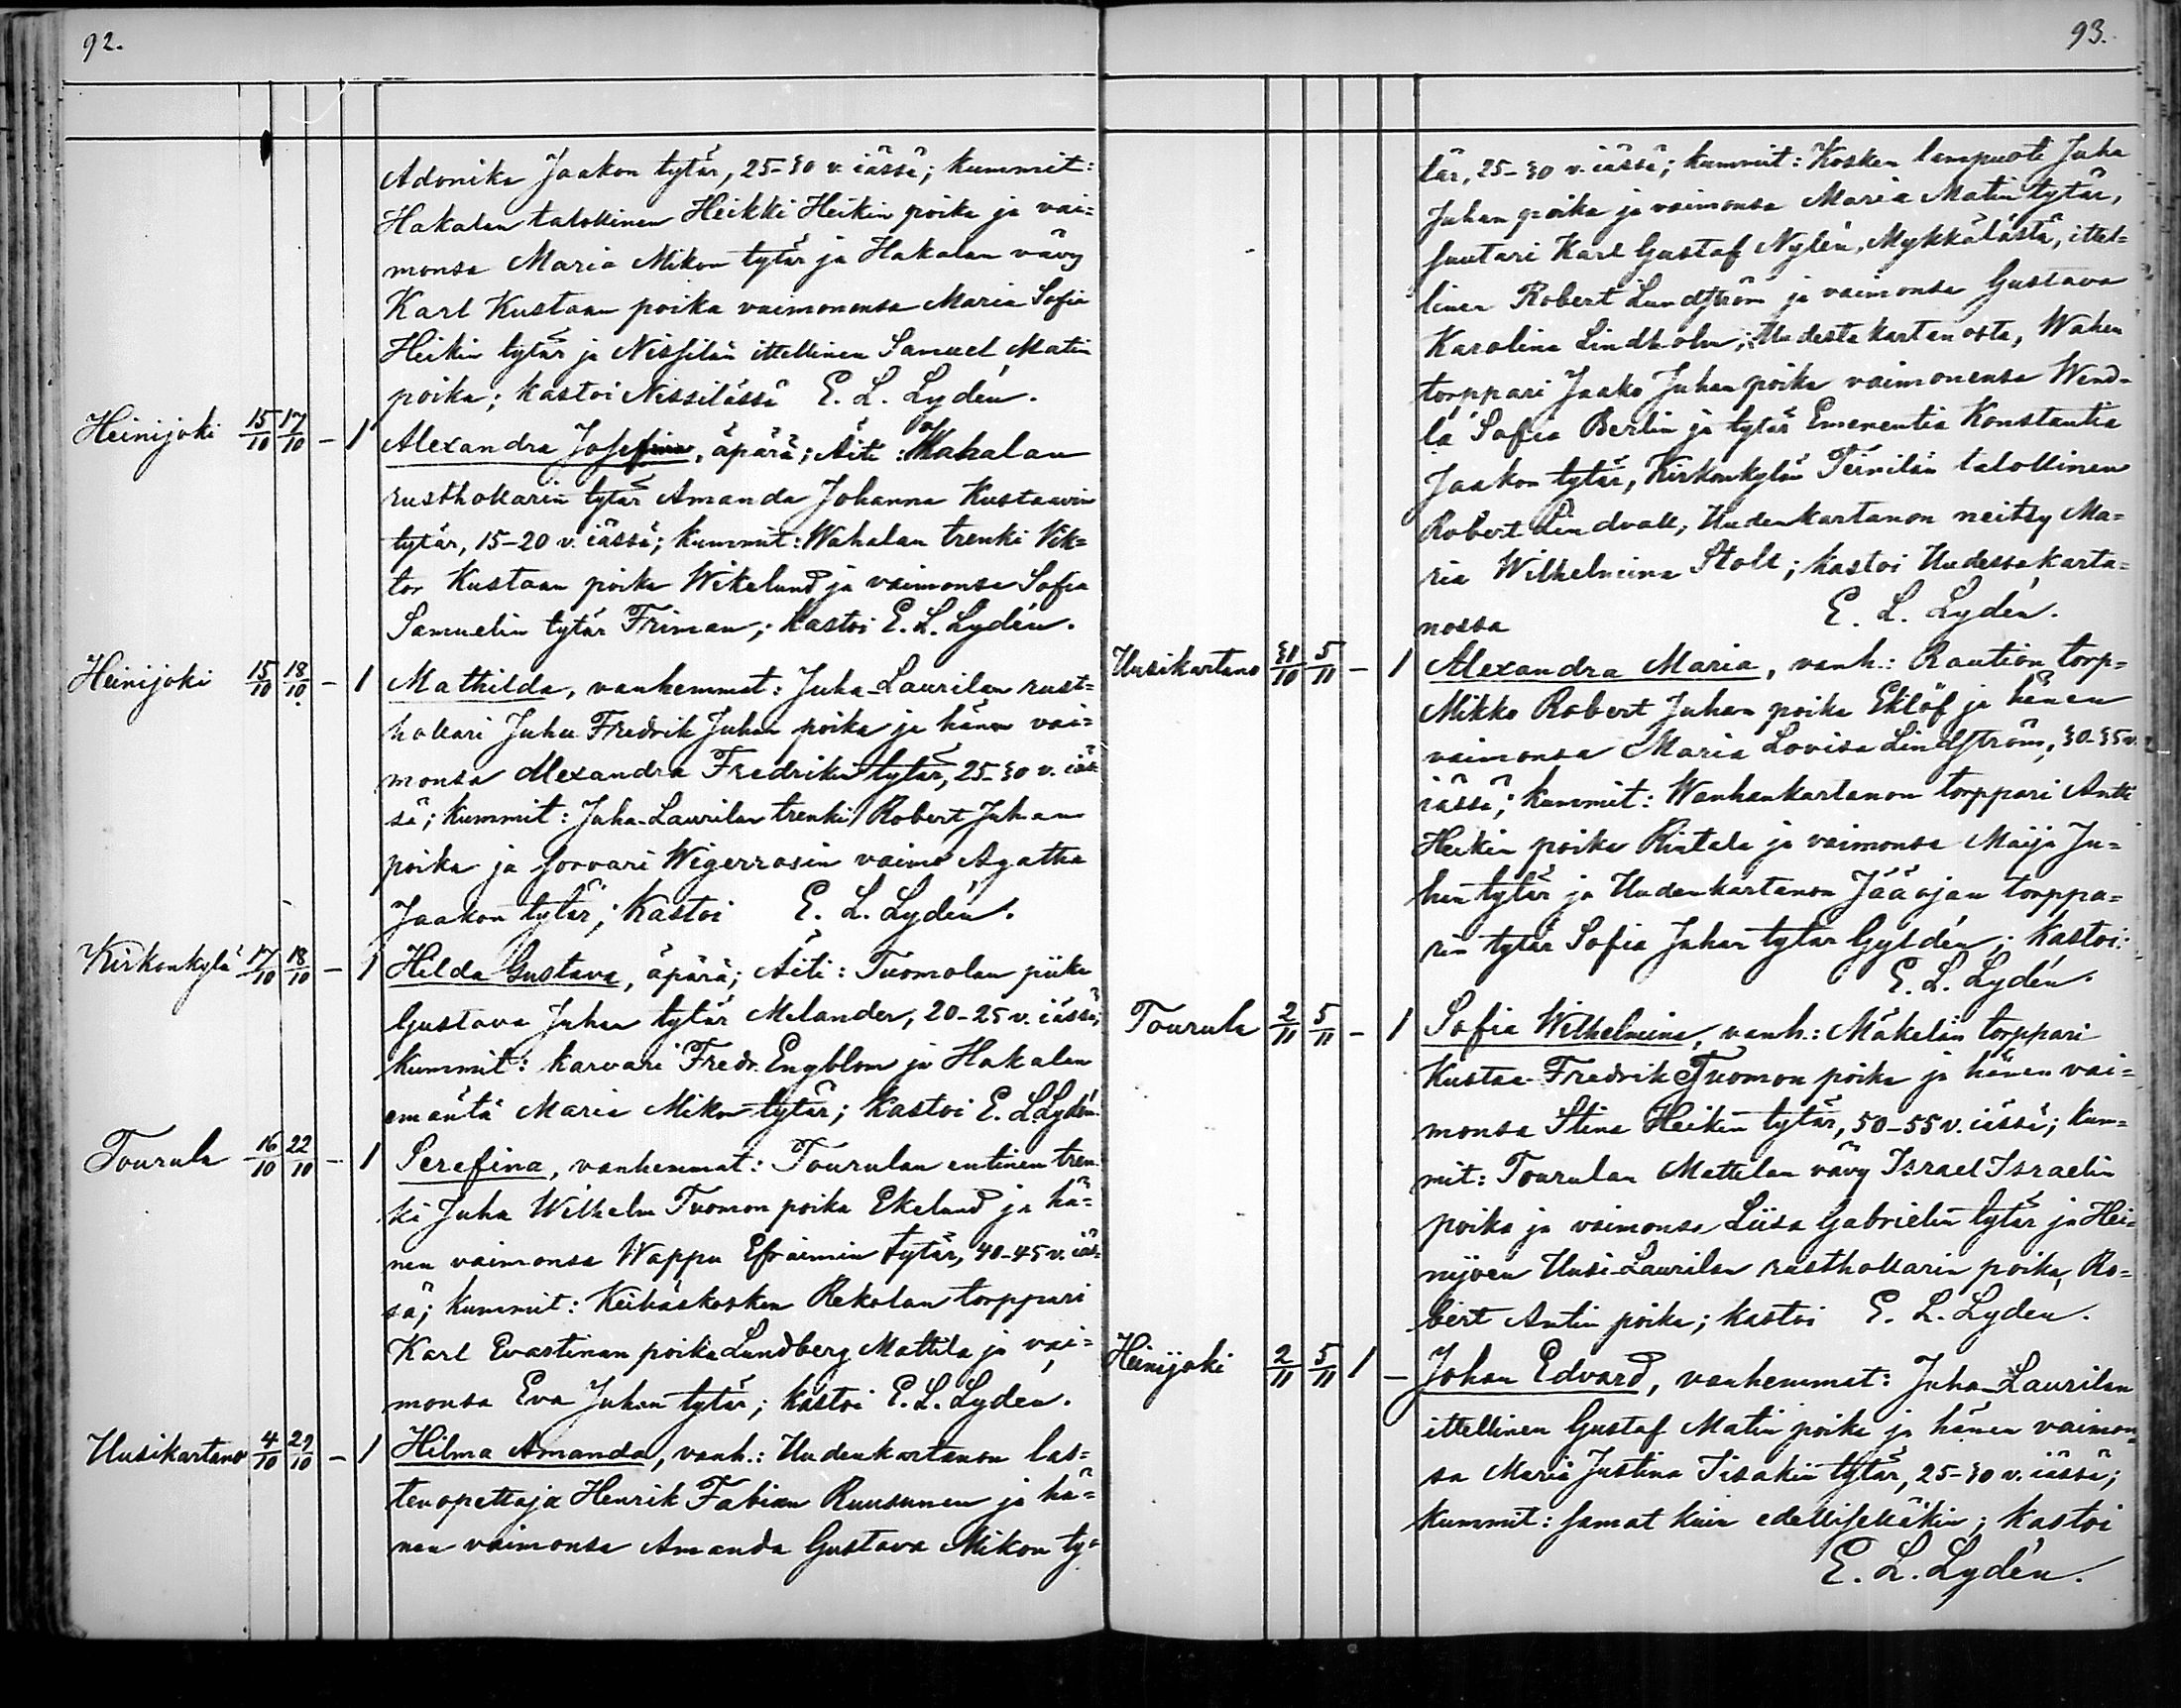 92.
Adonika Jaakon tytär, 25-30 v. iässä; kummit:
Hakalan talollinen Heikki Heikin poika ja vai=
monsa Maria Mikon tytär ja Hakalan vävy
Karl Kustaan poika vaimonensa Maria Sofia
Heikin tytär ja Nissilän ittellinen Samuel Matin
poika; kastoi Nissilässä E. L. Lydén.
Heinijoki 15/10 17/10 - 1 Alexandra Josefina, äpärä; Äiti: Wahalan
rusthollarin tytär Amanda Johanna Kustaavin
tytär, 15-20 v. iässä; kummit: Wahalan trenki Vik=
tor Kustaan poika Wikelund ja vaimonsa Sofia
Samuelin tytär Friman; kastoi E. L. Lydén.
Heinijoki 15/10 18/10. - 1 Mathilda, vanhemmat: Juha-Laurilan rust=
hollari Juha Fredrik Juhan poika ja hänen vai=
monsa Alexandra Fredrikin tytär, 25-30 v. iäs=
sä; kummit: Juha-Laurilan trenki Robert Juhan
poika ja sorvari Wigerrosin vaimo Agatha
Jaakon tytär; kastoi E. L. Lydén.
Kirkonkylä 17/10 18/10 - 1 Hilda Gustava, äpärä; Äiti: Tuomolan piika
Gustava Juhan tytär Melander, 20-25 v. iässä;
kummit: karvari Fredr. Engblom ja Hakalan
emäntä Maria Mikon tytär; kastoi E. L. Lydén.
Tourula 16/10 22/10 - 1 Serefina, vanhemmat: Tourulan entinen tren
ki Juha Wilhelm Tuomon poika Ekelund ja hä=
nen vaimonsa Wappu Efraimin tytär, 40-45 v. iäs=
sä; kummit: Keihäskosken Rekolan torppari
Karl Evastinan poika Lundberg Mattila ja vai=
monsa Eva Juhan tytär; kastoi E. L. Lyden.
Uusikartano 4/10 29/10 - 1 Hilma Amanda, vanh.: Uudenkartanon las=
tenopettaja Henrik Fabian Ruusunen ja hä=
nen vaimonsa Amanda Gustava Mikon ty=
93.
tär, 25-30 v. iässä; kummit: Kosken lampuoti Juha
Juhan poika ja vaimonsa Maria Matin tytär,
suutari Karl Gustaf Nylén, Mykkälästä, ittel=
linen Robert Lundström ja vaimonsa Gustava
Karolina Lindholm; Uudesta kartanosta, Wahen
torppari Jaako Juhan poika vaimonensa Wend=
la Sofia Berlin ja tytär Emerentia Konstantia
Jaakon tytär, Kirkonkylän Teinilän talollinen
Robert Lindvall, Uudenkartanon neitsy Ma=
ria Wilhelmina Stoll; kastoi Uudessa karta=
nossa E. L. Lydén.
Uusikartano 31/10 5/11 - 1 Alexandra Maria, vanh.: Raution torp=
Mikko Robert Juhan poika Eklöf ja hänen
vaimonsa Maria Lovisa Lindström, 30-35 v.
iässä; kummit: Wanhankartanon torppari Antti
Heikin poika Rintala ja vaimonsa Maija Ju=
han tytär ja Uudenkartanon Jääojan torppa=
rin tytär Sofia Juhan tytar Gyldén; kastoi:
E. L. Lydén.
Tourula 2/11 5/11 - 1 Sofia Wilhelmina, vanh.: Mäkelän torppari
Kustaa Fredrik Tuomon poika ja hänen vai=
monsa Stina Heikin tytär, 50-55 v. iässä; kum=
mit: Tourulan Mattilan vävy Israel Israelin
poika ja vaimonsa Liisa Gabrielin tytär ja Hei=
nijoen Uusi-Laurilan rusthollarin poika, Ro=
bert Antin poika; kastoi E. L. Lyden.
Heinijoki 2/11 5/11 1 - Johan Edvard, vanhemmat: Juha-Laurilan
ittellinen Gustaf Matin poika ja hänen vaimon=
sa Maria Justina Iisakin tytär, 25-30 v. iässä;
kummit: samat kuin edelliselläkin; kastoi
E. L. Lydén.